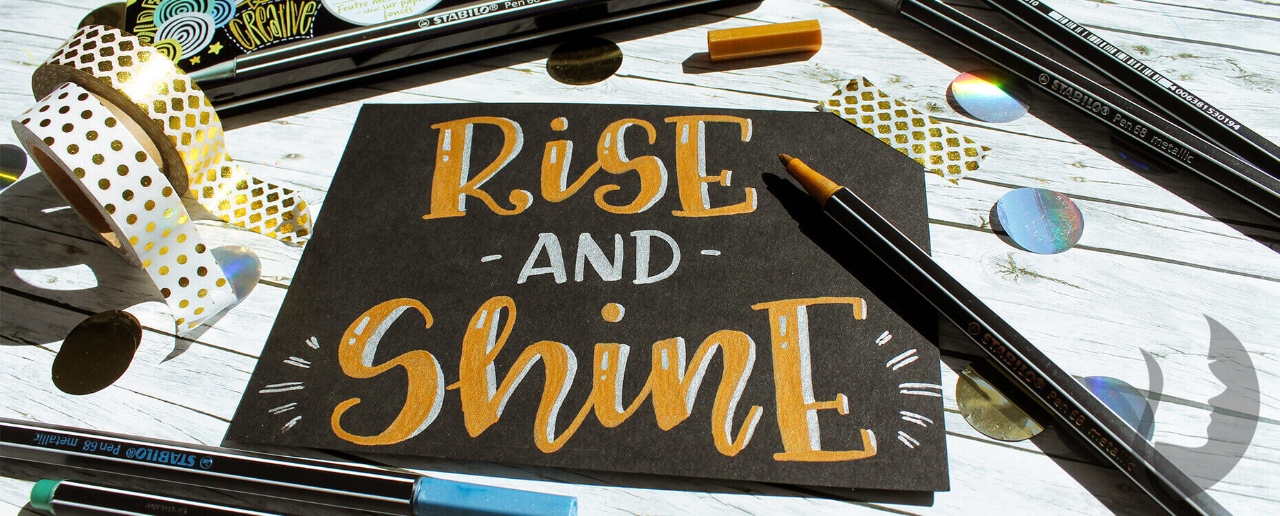 Creative
Feutre
STABILO® Pen 68
RiSE
-AND-
ShinE
STABILO® Pen 68 metallic
4006381530194
STABILO® Pen 68 metallic
STABILO® Pen 68 metallic